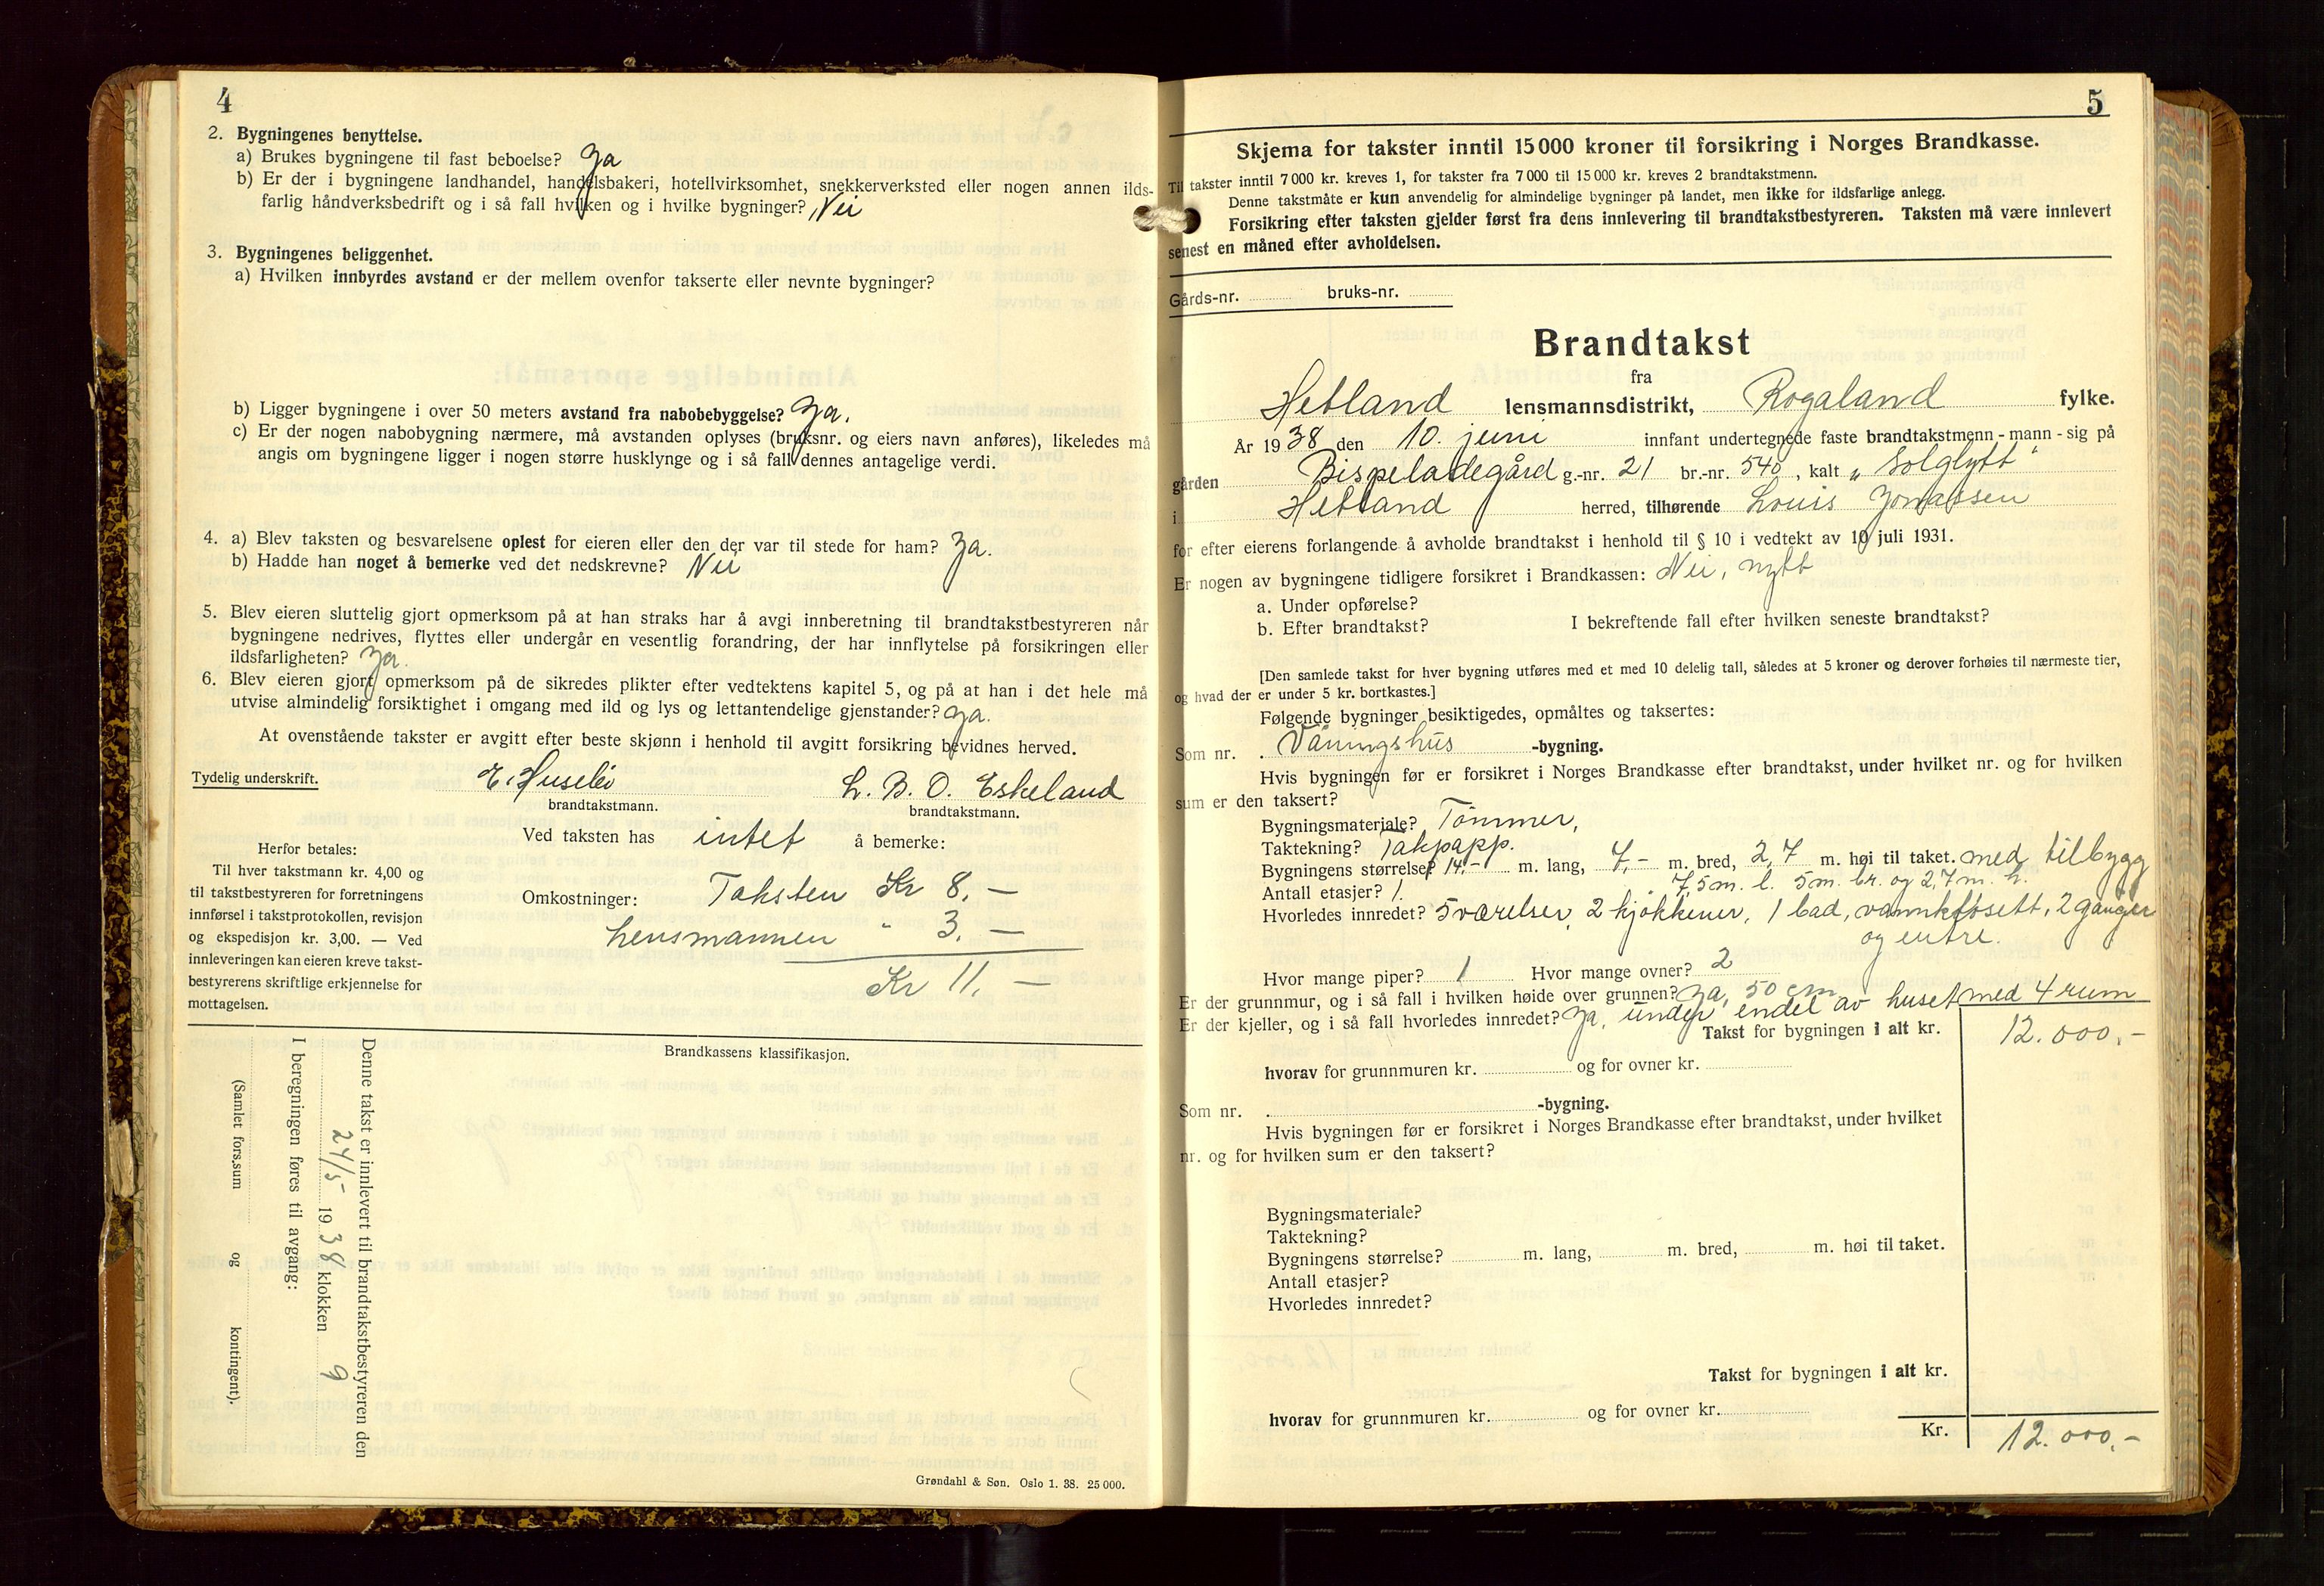 4
2. Bygningenes benyttelse.
a) Brukes bygningene til fast beboelse? Ja
b) Er der i bygningene landhandel, handelsbakeri, hotellvirksomhet, snekkerverksted eller nogen annen ilds-
farlig håndverksbedrift og i så fall hvilken og i hvilke bygninger? Nei
3. Bygningenes beliggenhet.
a) Hvilken innbyrdes avstand er der mellem ovenfor takserte eller nevnte bygninger?
b) Ligger bygningene i over 50 meters avstand fra nabobebyggelse? Ja.
c) Er der nogen nabobygning nærmere, må avstanden oplyses (bruksnr. og eiers navn anføres), likeledes må
angis om bygningene ligger i nogen større husklynge og i så fall dennes antagelige verdi.
4. a) Blev taksten og besvarelsene oplest for eieren eller den der var til stede for ham? Ja.
b) Hadde han noget å bemerke ved det nedskrevne? Nei
5. Blev eieren sluttelig gjort opmerksom på at han straks har å avgi innberetning til brandtakstbestyreren når
bygningene nedrives, flyttes eller undergår en vesentlig forandring, der har innflytelse på forsikringen eller
ildsfarligheten? Ja.
6. Blev eieren gjort opmerksom på de sikredes plikter efter vedtektens kapitel 5, og på at han i det hele må
utvise almindelig forsiktighet i omgang med ild og lys og lettantendelige gjenstander? Ja.
At ovenstående takster er avgitt efter beste skjønn i henhold til avgitt forsikring bevidnes herved.
Tydelig underskrift. E. Huseby L. B. O. Eskeland
brandtakstmann. brandtakstmann.
Ved taksten has intet å bemerke:
Herfor betales:
Til hver takstmann kr. 4,00 og
til takstbestyreren for forretningens
innførsel i takstprotokollen, revisjon
og ekspedisjon kr. 3,00. — Ved
innleveringen kan eieren kreve takst-
bestyrerens skriftlige erkjennelse for
mottagelsen.
Omkostninger: Taksten Kr 8,-
Lensmannen " 3.-
Kr 11.-
Brandkassens klassifikasjon.
Denne takst er innlevert til brandtakstbestyreren den
24/5 1938 klokken 9
I beregningen føres til avgang:
(Samlet fors.sum og kontingent).
Grøndahl & Søn. Oslo 1. 38. 25 000.
5
Skjema for takster inntil 15 000 kroner til forsikring i Norges Brandkasse.
Til takster inntil 7 000 kr. kreves 1, for takster fra 7 000 til 15 000 kr. kreves 2 brandtakstmenn.
Denne takstmåte er kun anvendelig for almindelige bygninger på landet, men ikke for ildsfarlige anlegg.
Forsikring efter taksten gjelder først fra dens innlevering til brandtakstbestyreren. Taksten må være innlevert
senest en måned efter avholdelsen.
Gårds-nr. bruks-nr.
Brandtakst
fra
Hetland lensmannsdistrikt, Rogaland fylke.
År 1938 den 10. juni innfant undertegnede faste brandtakstmenn - mann - sig på
gården Bispeladegård g.-nr. 21 br.-nr. 540, kalt „Solglytt"
i Hetland herred, tilhørende Louis Jonassen
for efter eierens forlangende å avholde brandtakst i henhold til § 10 i vedtekt av 10 juli 1931.
Er nogen av bygningene tidligere forsikret i Brandkassen: Nei, nytt
a. Under opførelse?
b. Efter brandtakst? I bekreftende fall efter hvilken seneste brandtakst?
[Den samlede takst for hver bygning utføres med et med 10 delelig tall, således at 5 kroner og derover forhøies til nærmeste tier,
og hvad der er under 5 kr. bortkastes.]
Følgende bygninger besiktigedes, opmåltes og taksertes:
Som nr. Våningshus -bygning.
Hvis bygningen før er forsikret i Norges Brandkasse efter brandtakst, under hvilket nr. og for hvilken
sum er den taksert?
Bygningsmateriale? Tømmer,
Taktekning? Takpapp.
Bygningens størrelse? 14.- m. lang, 7,- m. bred, 2,7 m. høi til taket. med tilbygg
Antall etasjer? 1. 7,5 m. l. 5 m. br. og 2,7 m. h.
Hvorledes innredet? 5 værelser, 2 kjøkkener, 1 bad, vannklosett, 2 ganger
og entre.
Hvor mange piper? 1 Hvor mange ovner? 2
Er der grunnmur, og i så fall i hvilken høide over grunnen? Ja, 50 cm
Er der kjeller, og i så fall hvorledes innredet? Ja, under endel av huset med 4 rum
Takst for bygningen i alt kr. 12.000,-
hvorav for grunnmuren kr. og for ovner kr.
Som nr. -bygning.
Hvis bygningen før er forsikret i Norges Brandkasse efter brandtakst, under hvilket
nr. og for hvilken sum er den taksert?
Bygningsmateriale?
Taktekning?
Bygningens størrelse? m. lang, m. bred, m. høi til taket.
Antall etasjer?
Hvorledes innredet?
Takst for bygningen i alt kr.
hvorav for grunnmuren kr. og for ovner kr.
Kr. 12.000,-